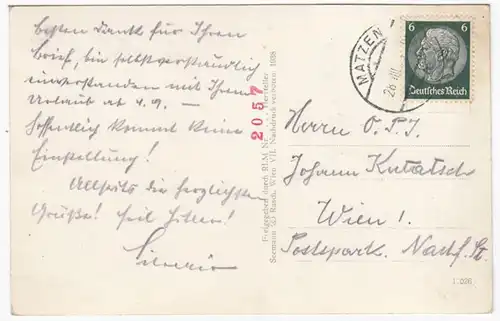 Besten Dank für Ihren
Brief, bin selbstverständlich
einverstanden mit Ihrem
Urlaub ab 4.9. –
Hoffentlich kommt keine
Einstellung!
Allseits die herzlichsten
Grüße! Heil Hitler!
2057
Freigegeben durch RLM Nr.
Hersteller
Seemann (C) Rauch, Wien VII. Nachdruck verboten 1938
MATZEN
26
6 6
Deutsches Reich
Herrn O.P.I.
Johann
Wien 1.
Postspark.